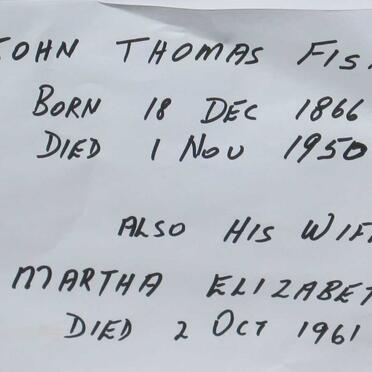 JOHN THOMAS FIS
BORN 18 DEC 1866
DIED 1 NOV 1950
ALSO HIS WIF
MARTHA ELIZABET
DIED 2 OCT 1961